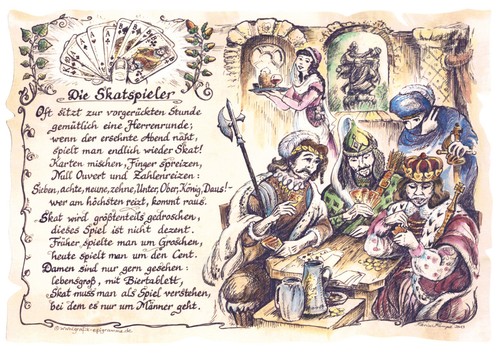 Die Skatspieler
Oft sitzt zur vorgerückten Stunde
gemütlich eine Herrenrunde;
wenn der ersehnte Abend naht,
spielt man endlich wieder Skat!
Karten mischen, Finger spreizen,
Null Ouvert und Zahlenreizen:
Sieben, achte, neune, zehne, Unter, Ober, König, Daus!-
wer am höchsten reizt, kommt raus.
Skat wird größtenteils gedroschen,
dieses Spiel ist nicht dezent.
Früher spielte man um Groschen,
heute spielt man um den Cent.
Damen sind nur gern gesehen:
lebensgroß, mit Biertablett,
Skat muss man als Spiel verstehen,
bei dem es nur um Männer geht.